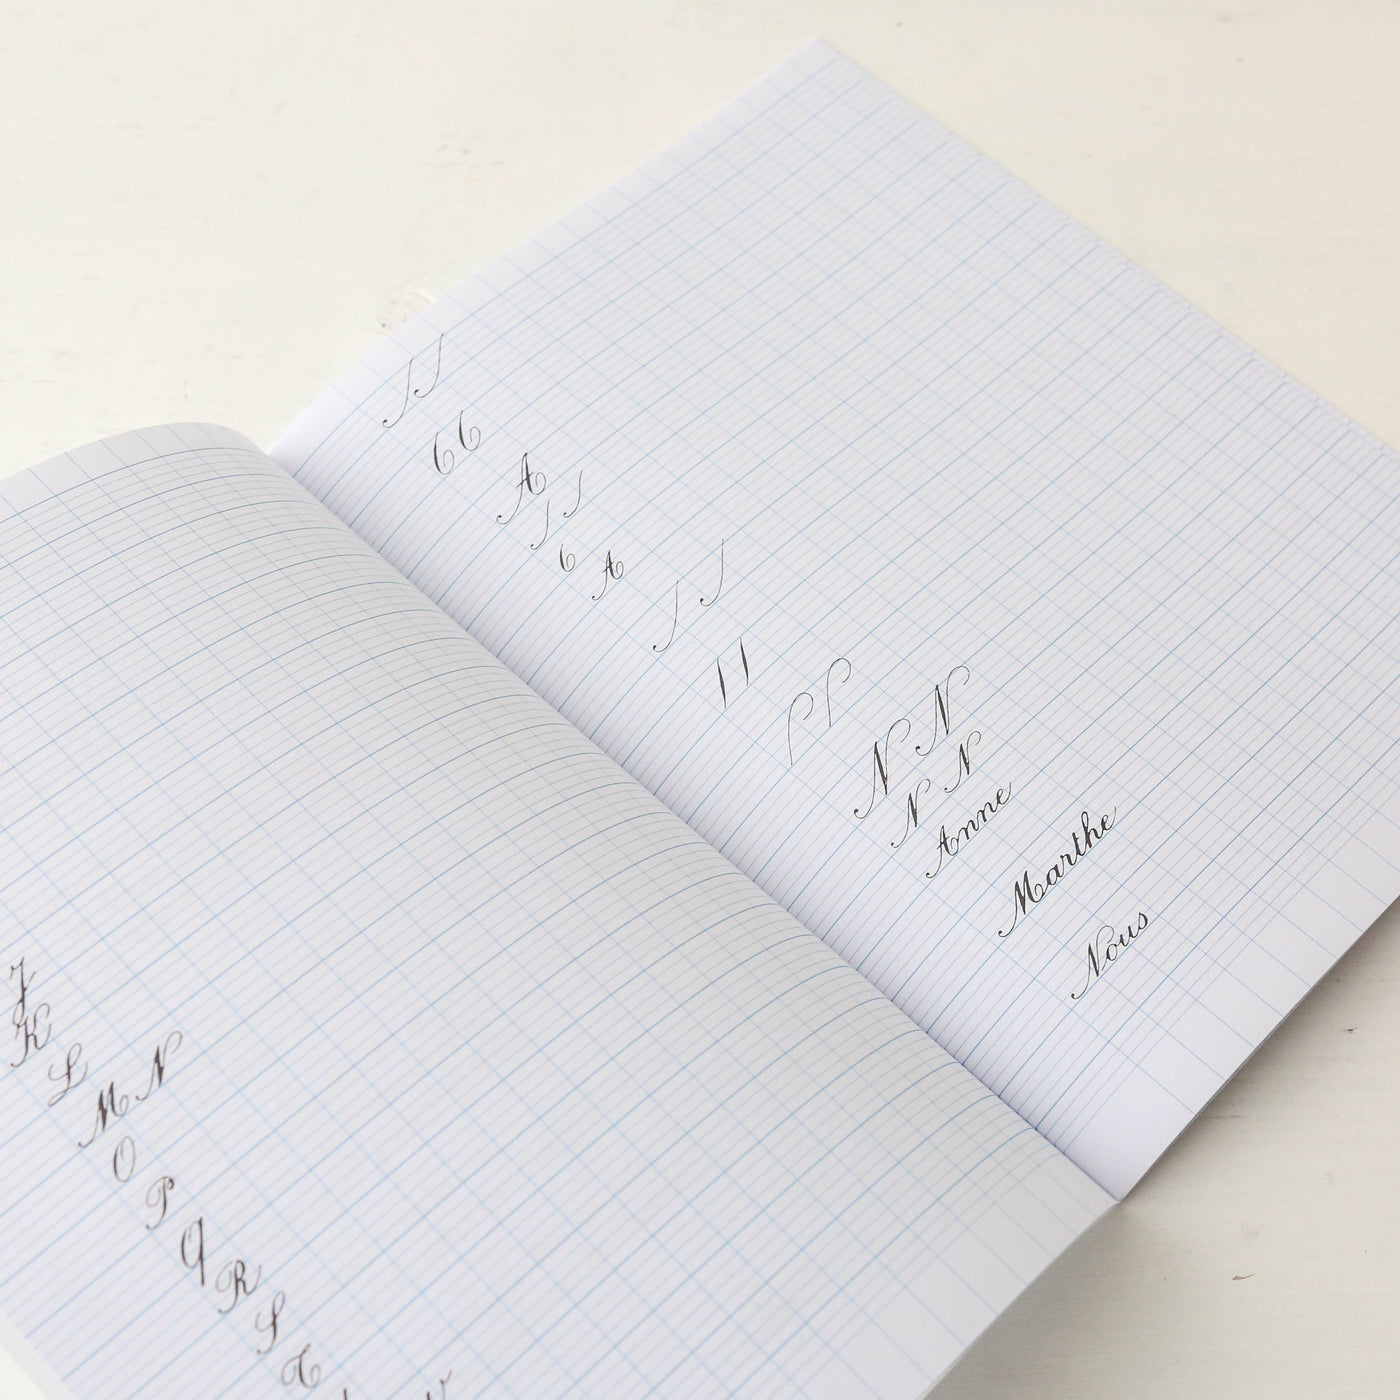 J
K
L
M N
O
P
Q
R
S
T
A
A
N N
N N
Anne
Marthe
Nous